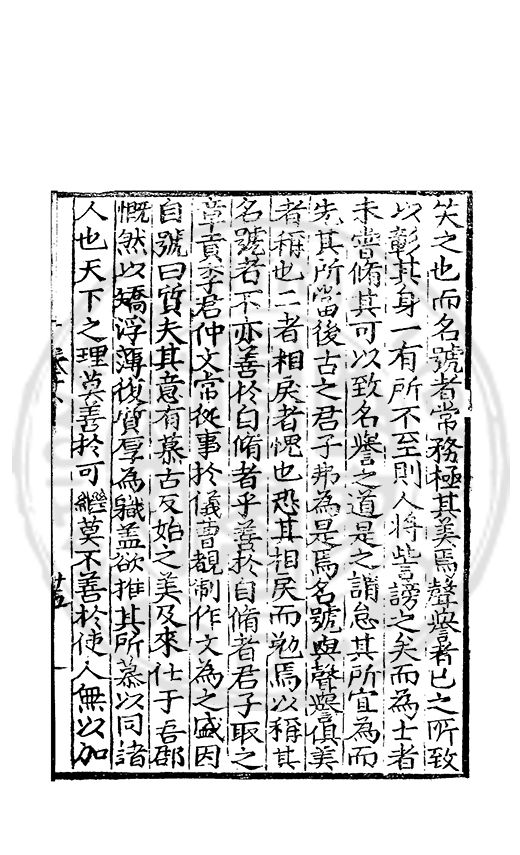 笑之也而名號者常務極其美焉聲譽者已之所致
以彰其身一有所不至則人將訾謗之矣而為士者
未嘗脩其可以致名譽之道是之謂怠其所宜為而
先其所當後古之君子弗為是焉名號與聲譽俱美
者稱也二者相戾者愧也恐其相戾而勉焉以稱其
名號者不亦善於自脩者乎善於自脩者君子取之
章貢李君仲文常從事於儀曹覩制作文為之盛因
自號曰質夫其意有慕古反始之美及來仕于吾郡
慨然以矯浮薄復質厚為職盖欲推其所慕以同諸
人也天下之理莫善於可繼莫不善於使人無以加